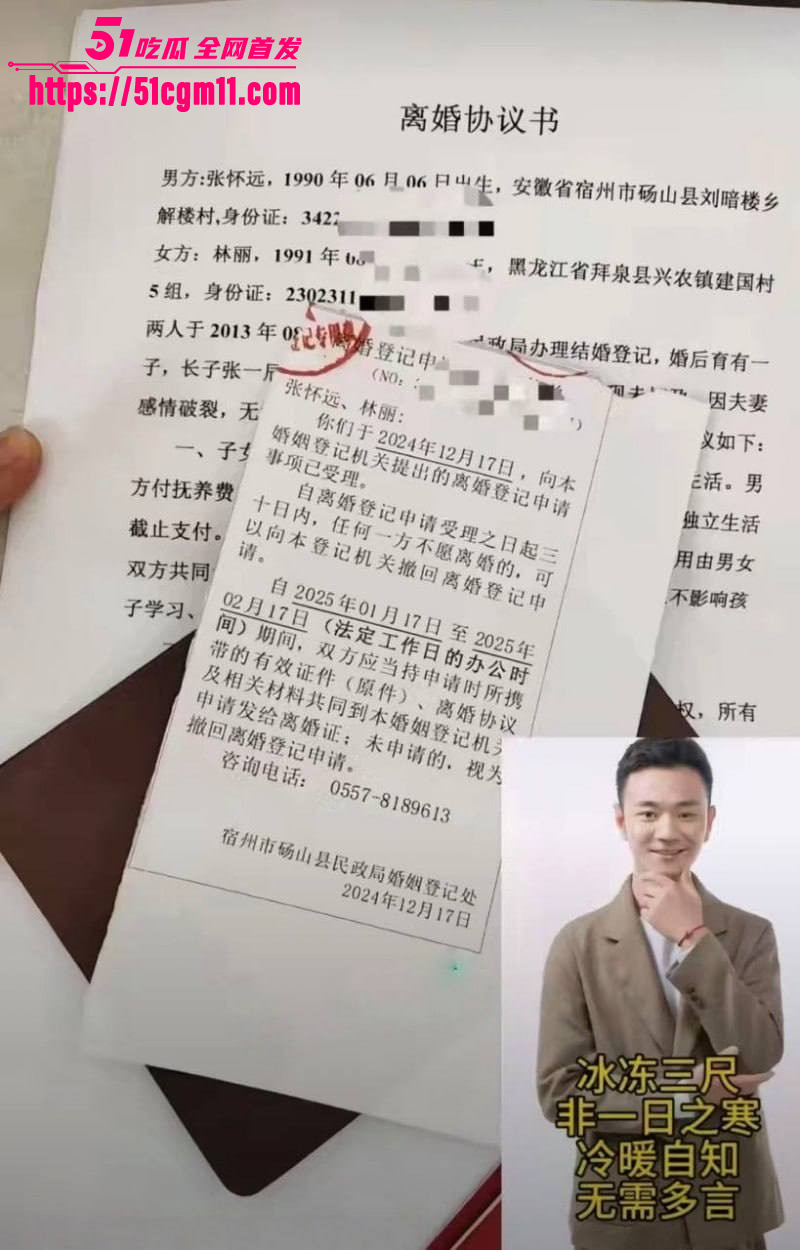 51吃瓜 全网首发
https://51cgm11.com
离婚协议书
男方:张怀远，1990 年 06 月 06 日出生，安徽省宿州市砀山县刘暗楼乡
解楼村,身份证：3422
女方：林丽，1991 年 08 黑龙江省拜泉县兴农镇建国村
5 组，身份证：2302311
两人于 2013 年 08 民政局办理结婚登记，婚后育有一
子，长子张一 因夫妻
感情破裂，无 议如下：
一、子女 生活。男
方付抚养费 独立生活
截止支付。 用由男女
双方共同 不影响孩
子学习、
权，所有
登记专用章
离婚登记申
（NO：
张怀远、林丽：
你们于2024年12月17日，向本
婚姻登记机关提出的离婚登记申请
事项已受理。
自离婚登记申请受理之日起三
十日内，任何一方不愿离婚的，可
以向本登记机关撤回离婚登记申
请。
自 2025年01月17日 至 2025年
02月17日（法定工作日的办公时
间）期间，双方应当持申请时所携
带的有效证件（原件）、离婚协议
及相关材料共同到本婚姻登记机关
申请发给离婚证；未申请的，视为
撤回离婚登记申请。
咨询电话： 0557-8189613
宿州市砀山县民政局婚姻登记处
2024年12月17日
冰冻三尺
非一日之寒
冷暖自知
无需多言